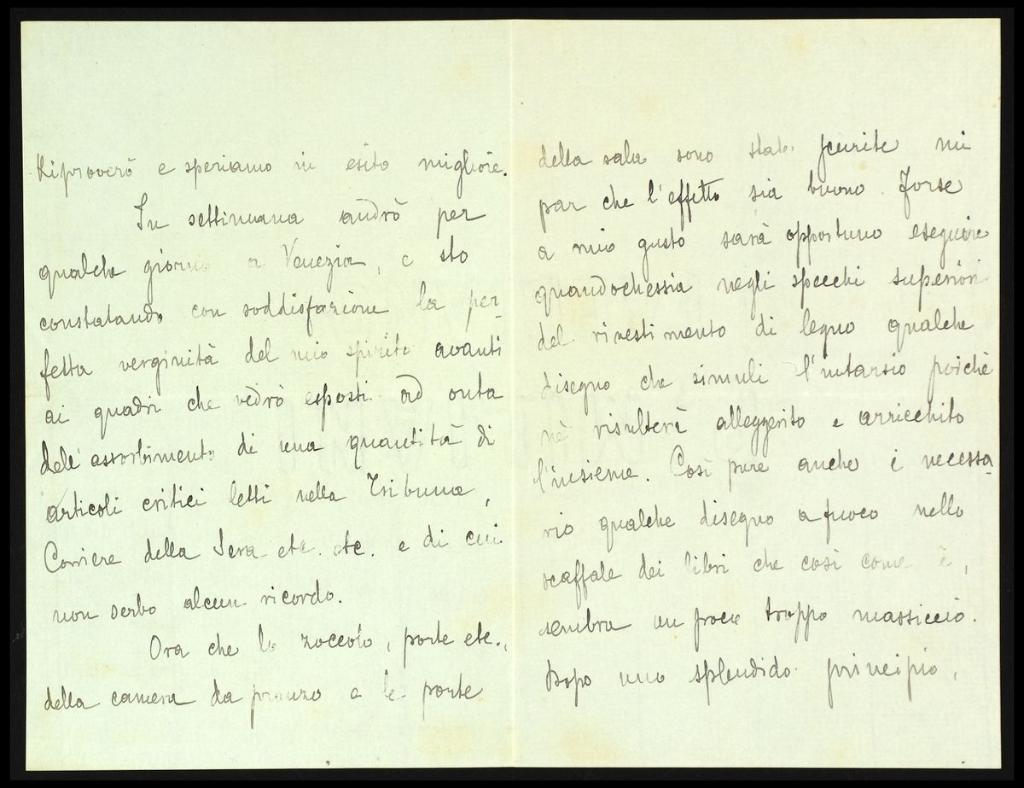 Riproverò e speriamo in esito migliore.
In settimana andrò per
qualche giorno a Venezia, e sto
constatando con soddisfazione la per-
fetta verginità del mio spirito avanti
ai quadri che vedrò esposti ad onta
dell'assorbimento di una quantità di
articoli critici letti nella Tribuna,
Corriere della Sera etc. etc. e di cui
non serbo alcun ricordo.
Ora che lo zoccolo, porte etc.,
della camera da pranzo e le porte
della sala sono state finite mi
par che l'effetto sia buono. Forse
a mio gusto sarà opportuno eseguire
quandochessia negli specchi superiori
del rivestimento di legno qualche
disegno che simuli l'intarsio poichè
nè risulterà alleggerito e arricchito
l'insieme. Così pure anche è necessa-
rio qualche disegno a fuoco nello
scaffale dei libri che così come è,
sembra un poco troppo massiccio.
Dopo uno splendido principio,